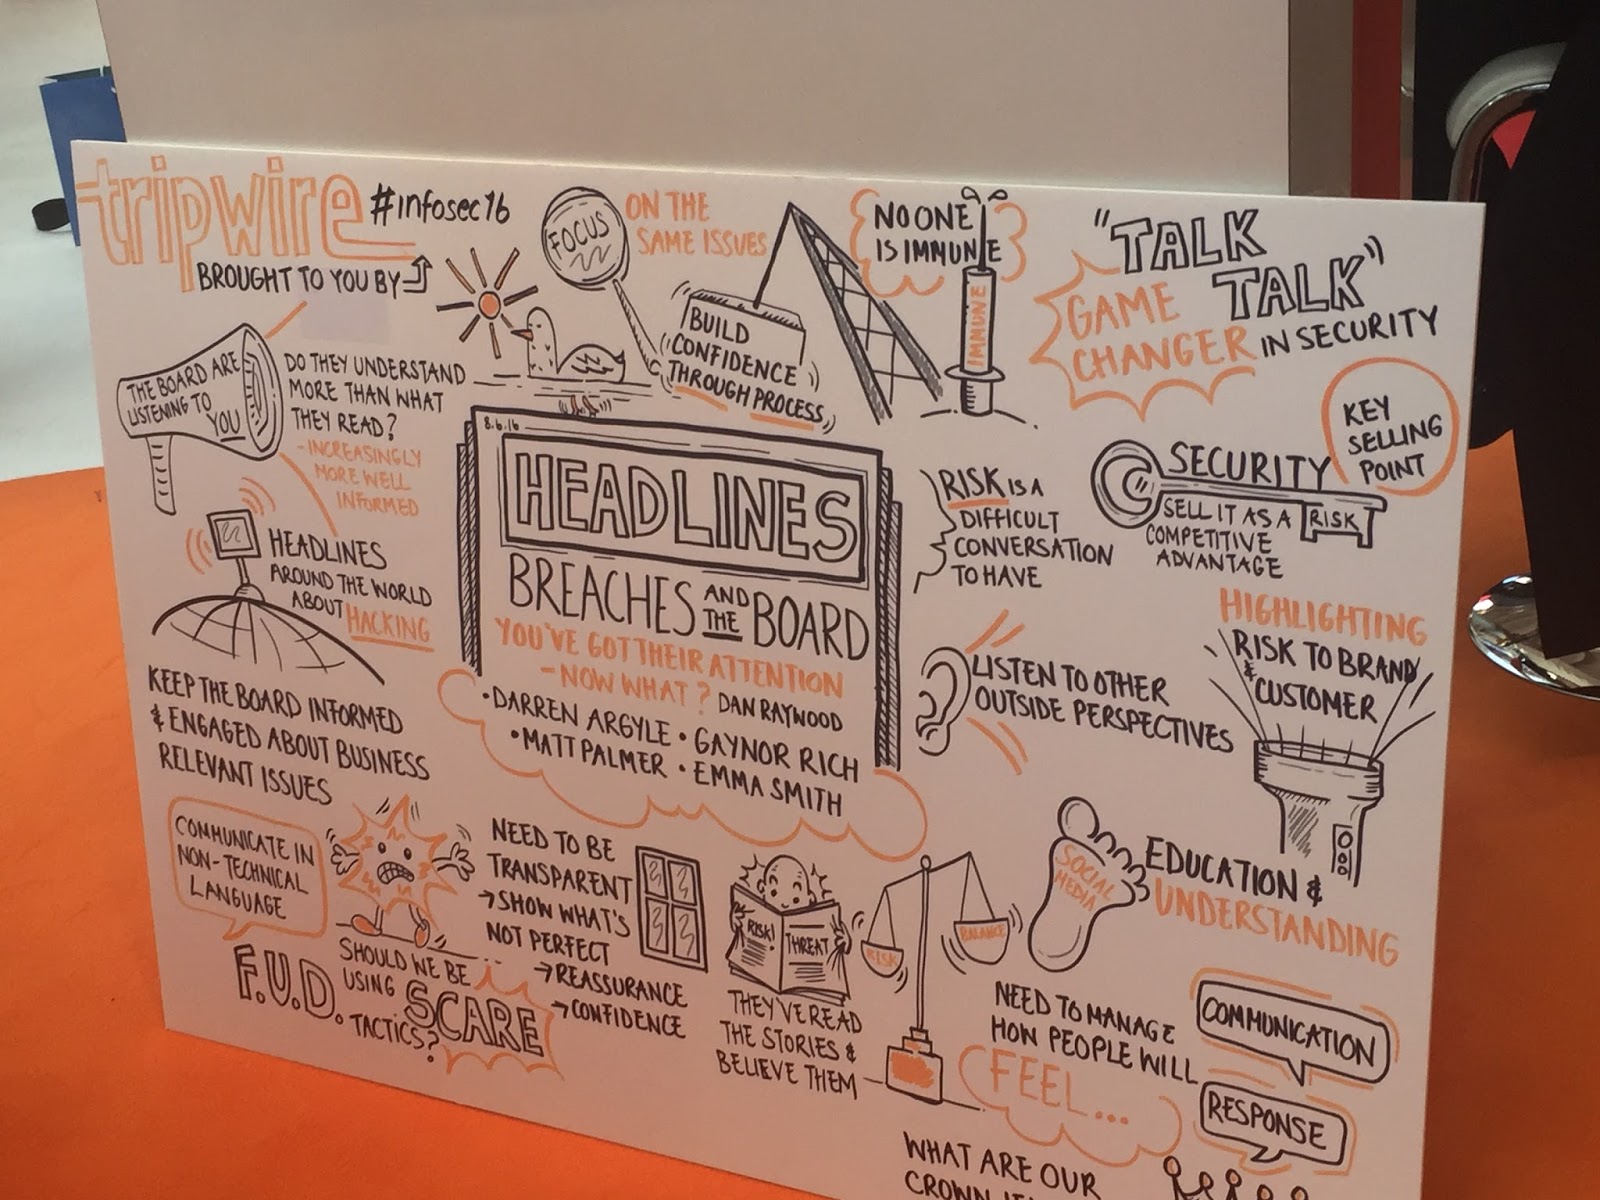 tripwire
#infosec16
BROUGHT TO YOU BY
FOCUS
ON THE
SAME ISSUES
BUILD
CONFIDENCE
THROUGH PROCESS
NO ONE
IS IMMUNE
IMMUNE
"TALK
TALK"
GAME
CHANGER
IN SECURITY
THE BOARD ARE
LISTENING TO
YOU
DO THEY UNDERSTAND
MORE THAN WHAT
THEY READ?
- INCREASINGLY
MORE WELL
INFORMED
HEADLINES
AROUND THE WORLD
ABOUT HACKING
KEEP THE BOARD INFORMED
& ENGAGED ABOUT BUSINESS
RELEVANT ISSUES
8.6.16
HEADLINES
BREACHES AND THE BOARD
YOU'VE GOT THEIR ATTENTION
- NOW WHAT? DAN RAYWOOD
• DARREN ARGYLE • GAYNOR RICH
• MATT PALMER • EMMA SMITH
RISK IS A
DIFFICULT
CONVERSATION
TO HAVE
KEY
SELLING
POINT
SECURITY
SELL IT AS A
COMPETITIVE
ADVANTAGE
RISK
LISTEN TO OTHER
OUTSIDE PERSPECTIVES
HIGHLIGHTING
RISK TO BRAND
& CUSTOMER
COMMUNICATE IN
NON-TECHNICAL
LANGUAGE
F.U.D.
SHOULD WE BE
USING SCARE
TACTICS?
NEED TO BE
TRANSPARENT
→ SHOW WHAT'S
NOT PERFECT
→ REASSURANCE
→ CONFIDENCE
RISK!
THREAT
THEY'VE READ
THE STORIES &
BELIEVE THEM
RISK
BALANCE
SOCIAL
MEDIA
EDUCATION &
UNDERSTANDING
NEED TO MANAGE
HOW PEOPLE WILL
FEEL...
COMMUNICATION
RESPONSE
WHAT ARE OUR
CROWN